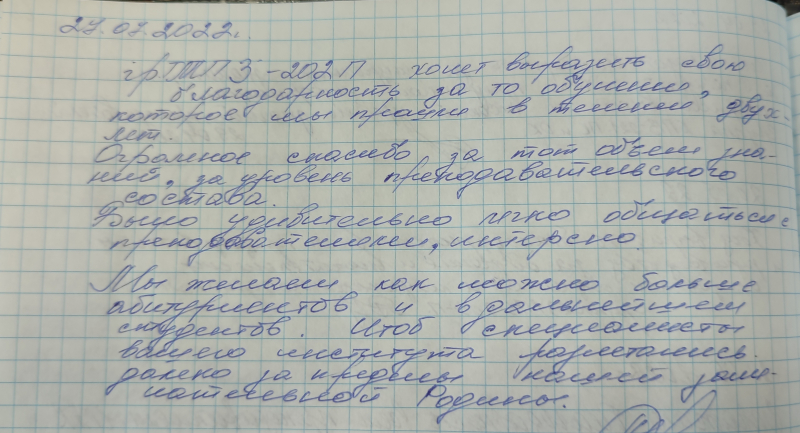 27.07.2022г.
гр ТПЗ-202П хочет выразить свою
благодарность за то обучение,
которое мы прошли в течение двух-
лет.
Огромное спасибо за тот объем зна-
ний, за уровень преподавательского
состава.
Было удивительно легко общаться с
преподавателями, интерсно.
Мы желаем как можно больше
абитуриентов и в дальнейшем
студентов. Чтоб специалисты
вашего института разлетались
далеко за пределы нашей заме-
чательной Родины.